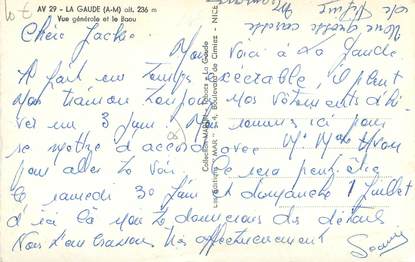 AV 29 - LA GAUDE (A-M) alt. 236 m
Vue générale et le Baou
Chère Jackie
Nous voici à La Gaude
À part un temps acceptable, il pleut
nos vêtements d'hi-
ver un 3 juin! Nous sommes ici pour
se mettre d'accord avec Mr Mme Yvon
pour aller te voir. Ce sera peut-être
le samedi 30 juin et dimanche 1 juillet
d'ici là nous te donnerons des détails
Nous t'embrassons très affectueusement
Collection
La Gaude
Les Editions "MAR" -
Boulevard de Cimiez - NICE